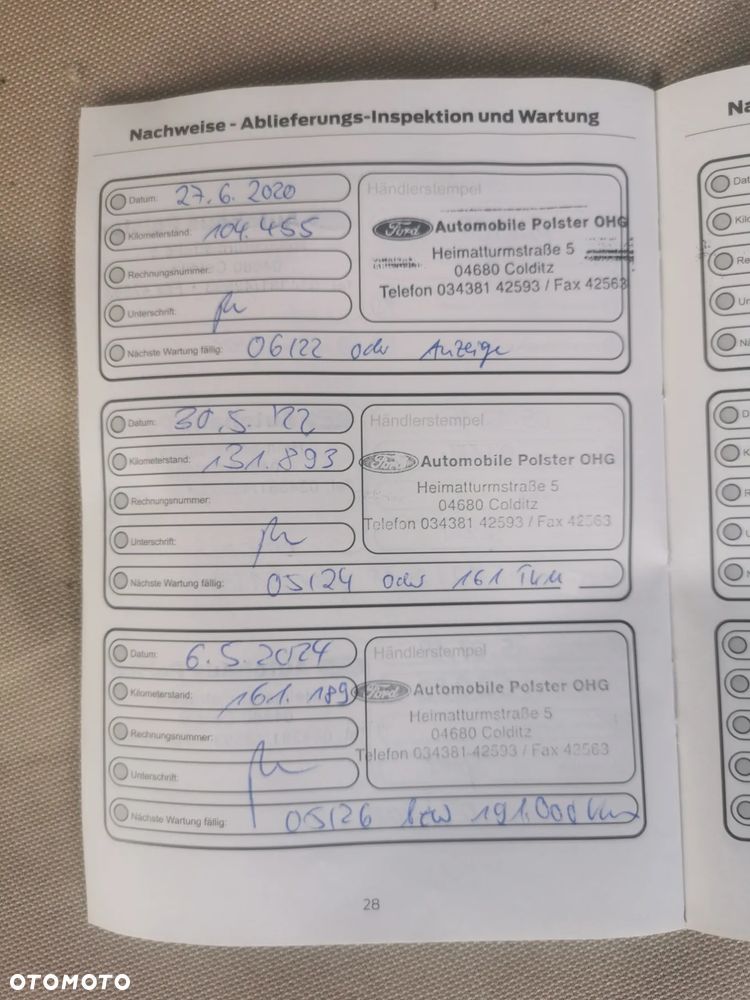 Nachweise - Ablieferungs-Inspektion und Wartung
Datum: 27.6.2020
Kilometerstand: 104.455
Rechnungsnummer:
Unterschrift:
Nächste Wartung fällig: 06/22 oder Anzeige
Händlerstempel
Ford Automobile Polster OHG
Heimatturmstraße 5
04680 Colditz
Telefon 034381 42593 / Fax 42563
Datum: 30.5.'22
Kilometerstand: 131.893
Rechnungsnummer:
Unterschrift:
Nächste Wartung fällig: 05/24 oder 161 TKM
Händlerstempel
Ford Automobile Polster OHG
Heimatturmstraße 5
04680 Colditz
Telefon 034381 42593 / Fax 42563
Datum: 6.5.2024
Kilometerstand: 161.189
Rechnungsnummer:
Unterschrift:
Nächste Wartung fällig: 05/26 bzw 191.000 km
Händlerstempel
Ford Automobile Polster OHG
Heimatturmstraße 5
04680 Colditz
Telefon 034381 42593 / Fax 42563
28
Na
OTOMOTO